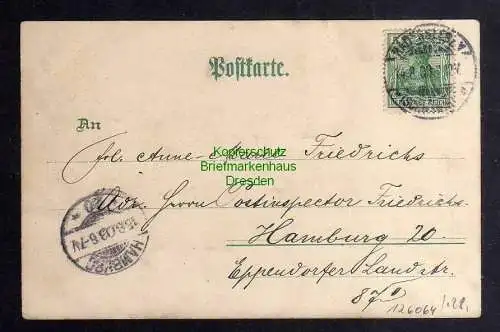 Postkarte.
An
Frl. Anne-Marie Friedrichs
Adr. Herrn Postinspector Friedrichs
Hamburg 20
Eppendorfer Landstr.
87 II
Kopierschutz
Briefmarkenhaus
Dresden
HAMBURG
15.8.03.6-7N
126064